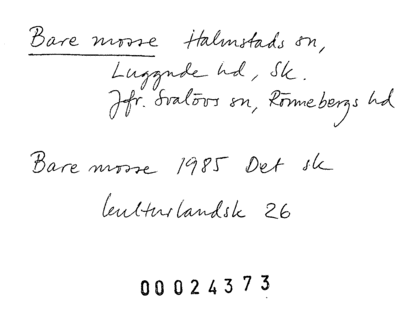 Bare mosse Halmstads sn,
Luggude hd, Sk.
Jfr. Svalövs sn, Rönnebergs hd
Bare mosse 1985 Det sk
kulturlandsk 26
00024373